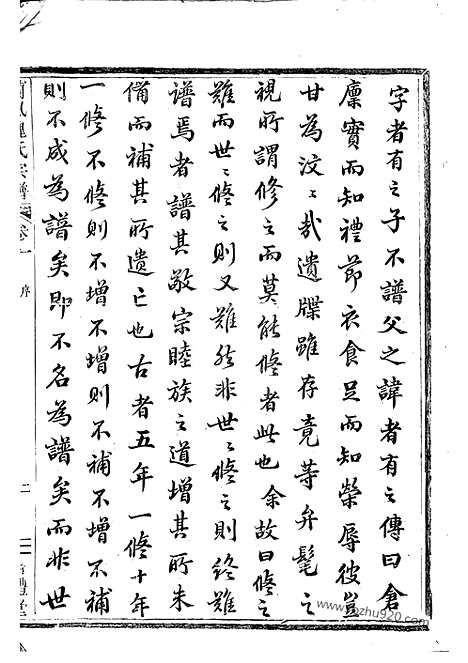 字者有之子不譜父之諱者有之傳曰倉
廩實而知禮節衣食足而知榮辱彼豈
甘為汶〻哉遺牒雖存竟等弁髦之
視所謂修之而莫能修者此也余故曰修之
難而世〻修之則又難然非世〻修之則終難
譜焉者譜其敬宗睦族之道增其所未
備而補其所遺亡也古者五年一修十年
一修不修則不增不增則不補不增不補
則不成為譜矣即不名為譜矣而非世
氏宗譜 卷一 序 二